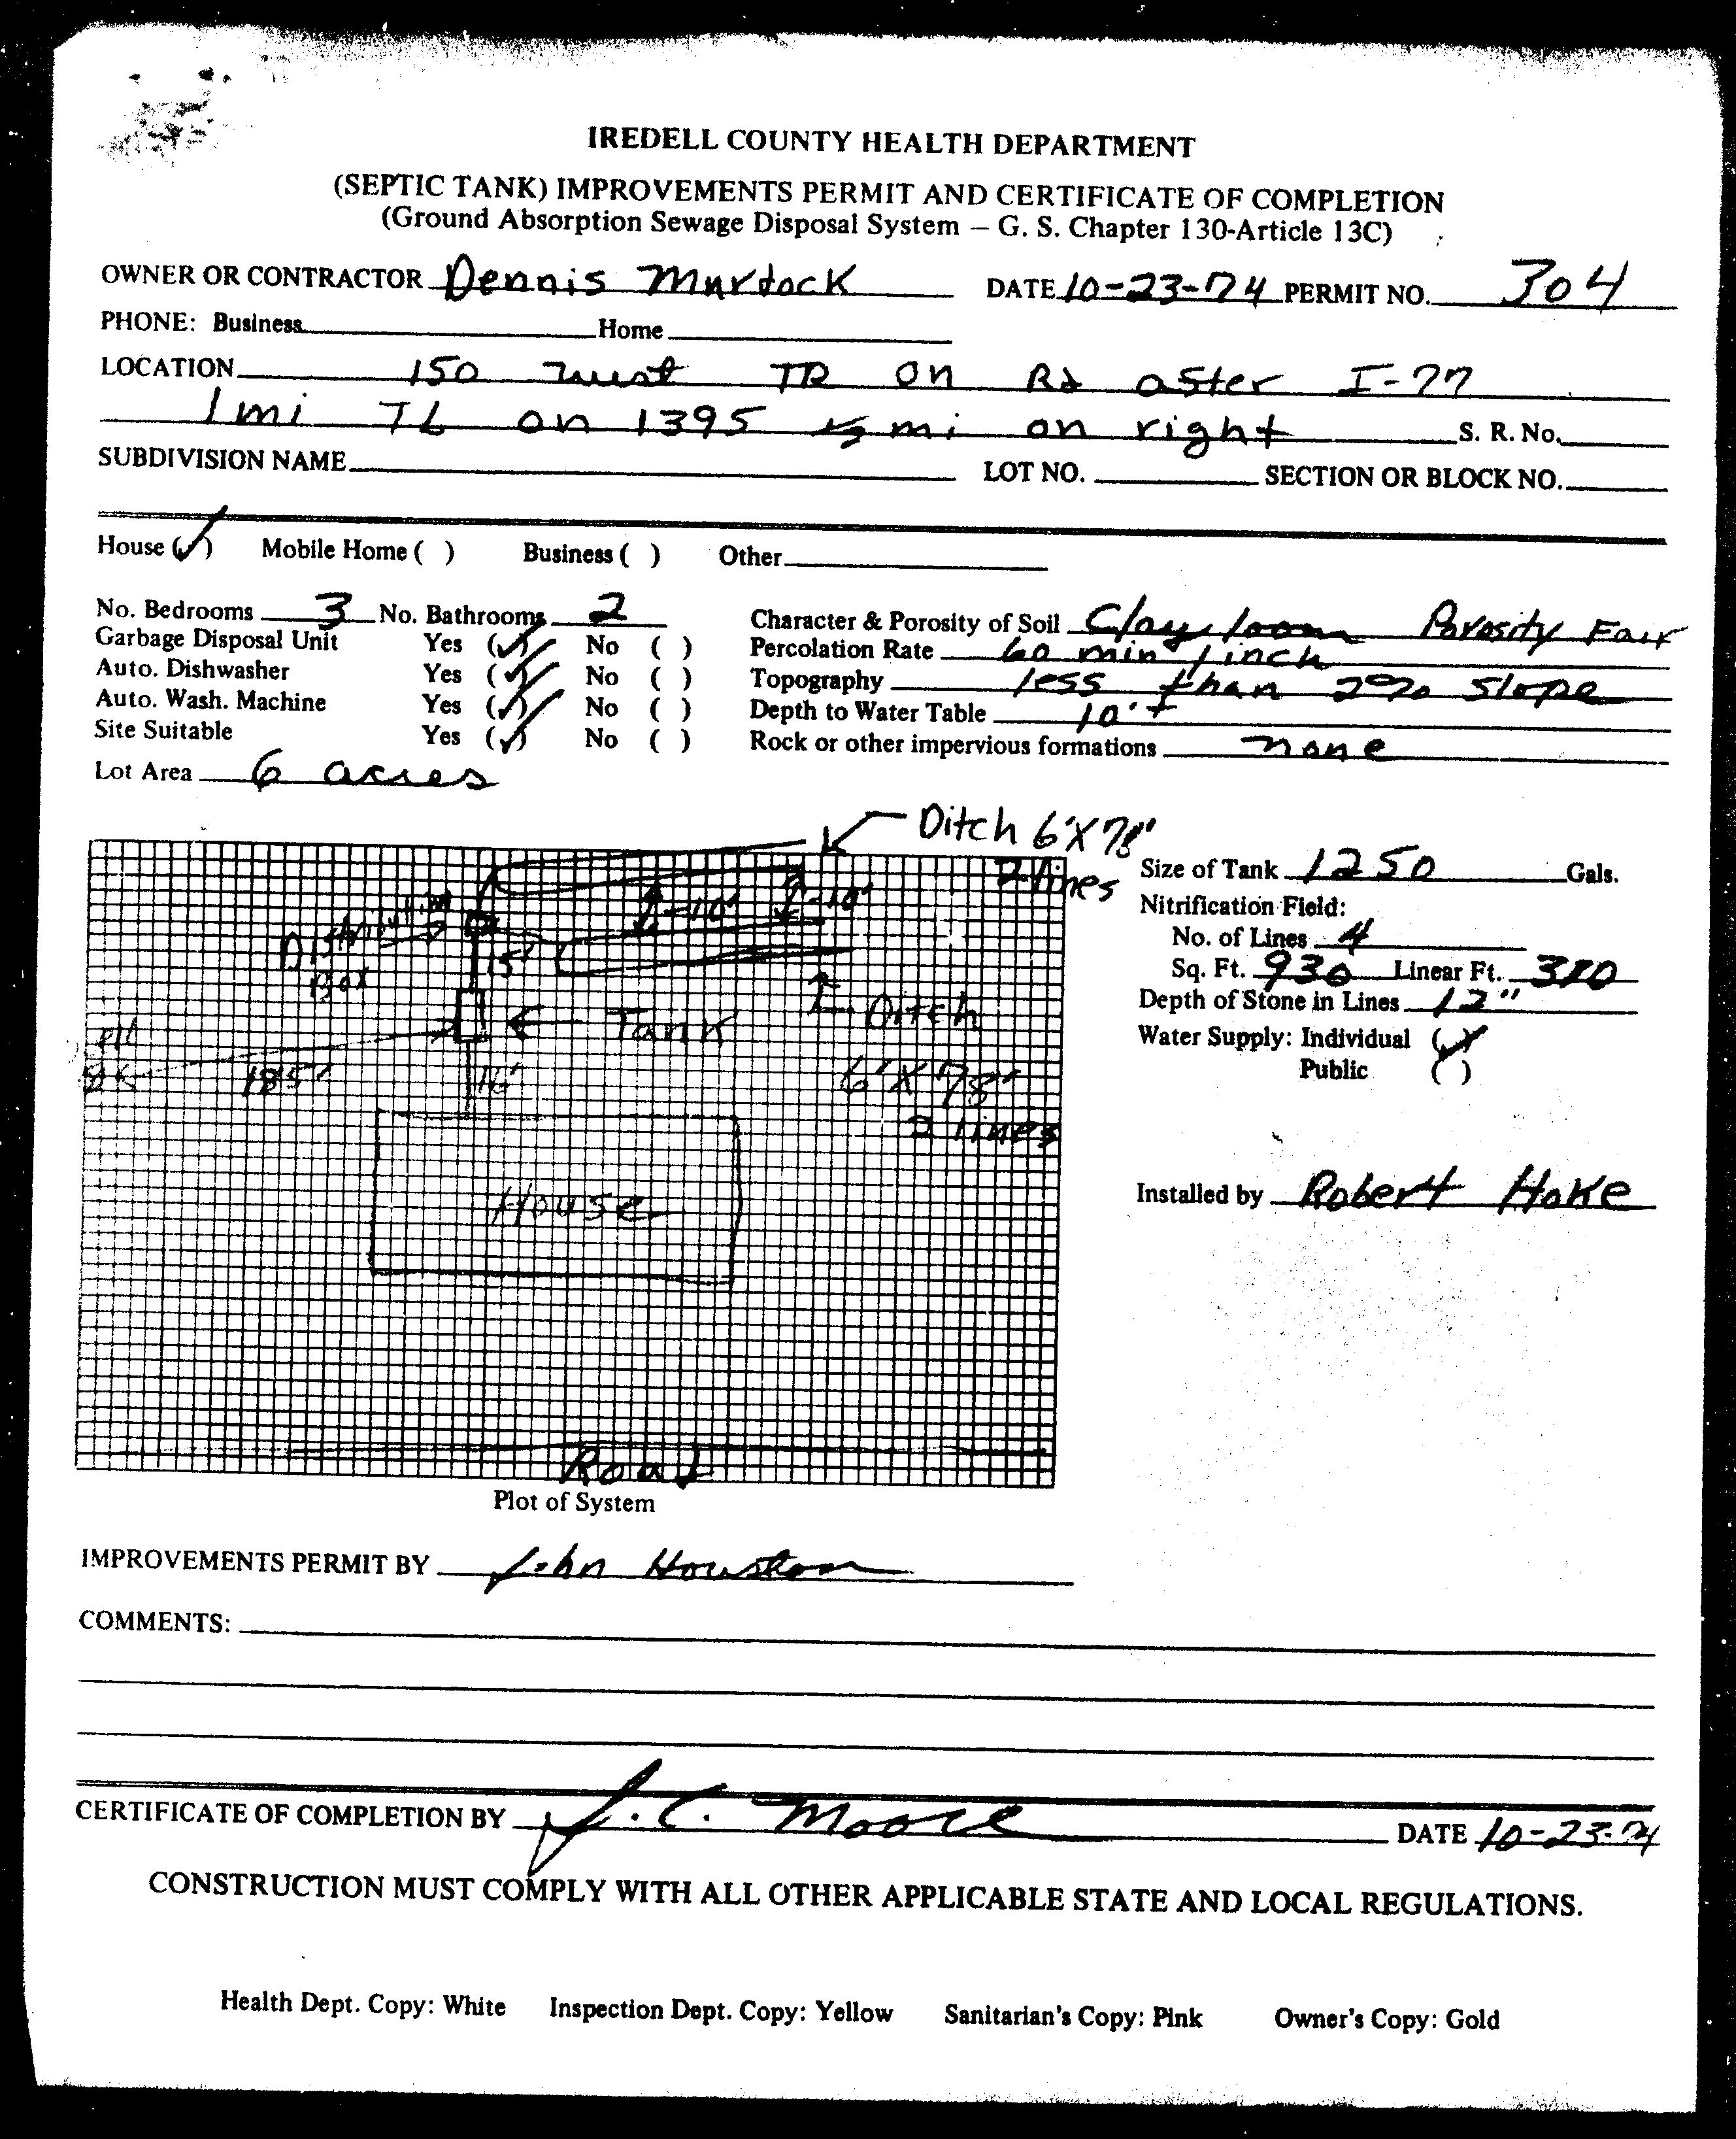 IREDELL COUNTY HEALTH DEPARTMENT
(SEPTIC TANK) IMPROVEMENTS PERMIT AND CERTIFICATE OF COMPLETION
(Ground Absorption Sewage Disposal System – G. S. Chapter 130-Article 13C)
OWNER OR CONTRACTOR Dennis Murdock DATE 10-23-74 PERMIT NO. 304
PHONE: Business Home
LOCATION 150 West TR on Rd after I-77
1 mi TL on 1395 mi on right S. R. No.
SUBDIVISION NAME LOT NO. SECTION OR BLOCK NO.
House (✓) Mobile Home ( ) Business ( ) Other
No. Bedrooms 3 No. Bathrooms 2 Character & Porosity of Soil Clay loam Porosity Fair
Garbage Disposal Unit Yes (✓) No ( ) Percolation Rate 60 min / inch
Auto. Dishwasher Yes (✓) No ( ) Topography less than 2% slope
Auto. Wash. Machine Yes (✓) No ( ) Depth to Water Table 10'+
Site Suitable Yes (✓) No ( ) Rock or other impervious formations none
Lot Area 6 acres
Ditch 6'X78'
2 lines
Size of Tank 1250 Gals.
Nitrification Field:
No. of Lines 4
Sq. Ft. 930 Linear Ft. 310
Depth of Stone in Lines 12"
Water Supply: Individual (✓)
Public ( )
Distribution Box
10' 10'
15'
Tank
Ditch
6'X78'
2 lines
185' 16'
House
Installed by Robert Hoke
Road
Plot of System
IMPROVEMENTS PERMIT BY John Houston
COMMENTS:
CERTIFICATE OF COMPLETION BY J. C. Moore DATE 10-23-74
CONSTRUCTION MUST COMPLY WITH ALL OTHER APPLICABLE STATE AND LOCAL REGULATIONS.
Health Dept. Copy: White Inspection Dept. Copy: Yellow Sanitarian's Copy: Pink Owner's Copy: Gold